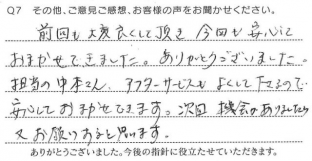 Q7 その他、ご意見ご感想、お客様の声をお聞かせください。
前回も大変良くして頂き 今回も安心して
おまかせできました。ありがとうございました。
担当の中本さん、アフターサービスもよくして下さるので
安心しておまかせできます。次回 機会がありましたら
又お願いすると思います。
ありがとうございました。今後の指針に役立たせていただきます。